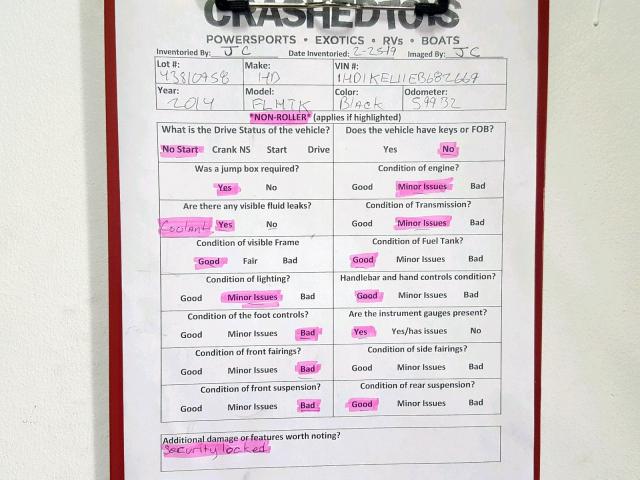 CRASHEDTOYS
POWERSPORTS • EXOTICS • RVs • BOATS
Inventoried By: JC Date Inventoried: 2-25-19 Imaged By: JC
Lot #: Make: VIN #:
43810958 HD 1HD1KEL11EB682669
Year: Model: Color: Odometer:
2014 FLHTK Black 59932
*NON-ROLLER* (applies if highlighted)
What is the Drive Status of the vehicle? Does the vehicle have keys or FOB?
No Start Crank NS Start Drive Yes No
Was a jump box required? Condition of engine?
Yes No Good Minor Issues Bad
Are there any visible fluid leaks? Condition of Transmission?
Coolant Yes No Good Minor Issues Bad
Condition of visible Frame Condition of Fuel Tank?
Good Fair Bad Good Minor Issues Bad
Condition of lighting? Handlebar and hand controls condition?
Good Minor Issues Bad Good Minor Issues Bad
Condition of the foot controls? Are the instrument gauges present?
Good Minor Issues Bad Yes Yes/has issues No
Condition of front fairings? Condition of side fairings?
Good Minor Issues Bad Good Minor Issues Bad
Condition of front suspension? Condition of rear suspension?
Good Minor Issues Bad Good Minor Issues Bad
Additional damage or features worth noting?
Security locked